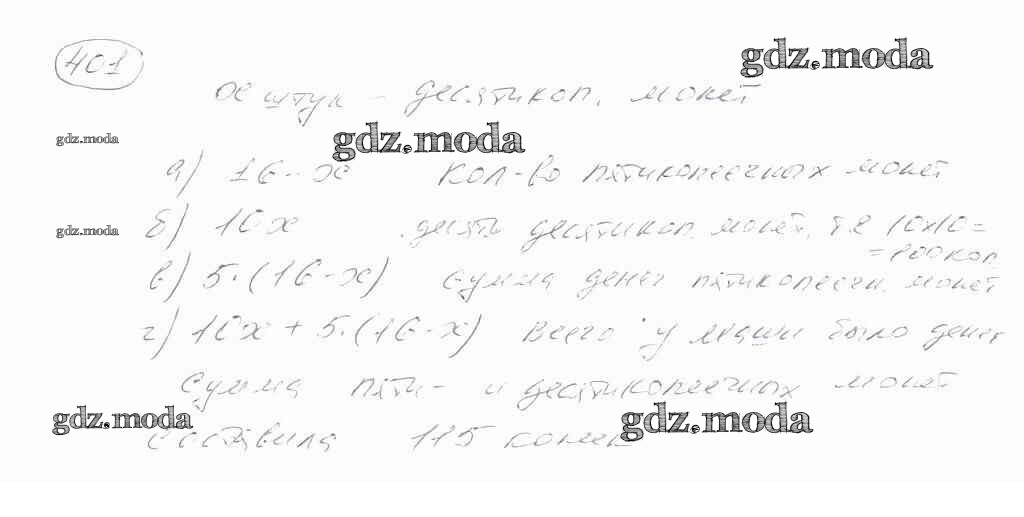 401
gdz.moda
x штук - десятикоп. монет
gdz.moda
gdz.moda
а) 16 - x кол-во пятикопеечных монет
gdz.moda
б) 10x десять десятикоп. монет, т.е 10x10=
=100коп
в) 5·(16-x) сумма денег пятикопеечн. монет
г) 10x + 5·(16-x) всего у Маши было денег
сумма пяти- и десятикопеечных монет
gdz.moda
gdz.moda
составила 115 копеек